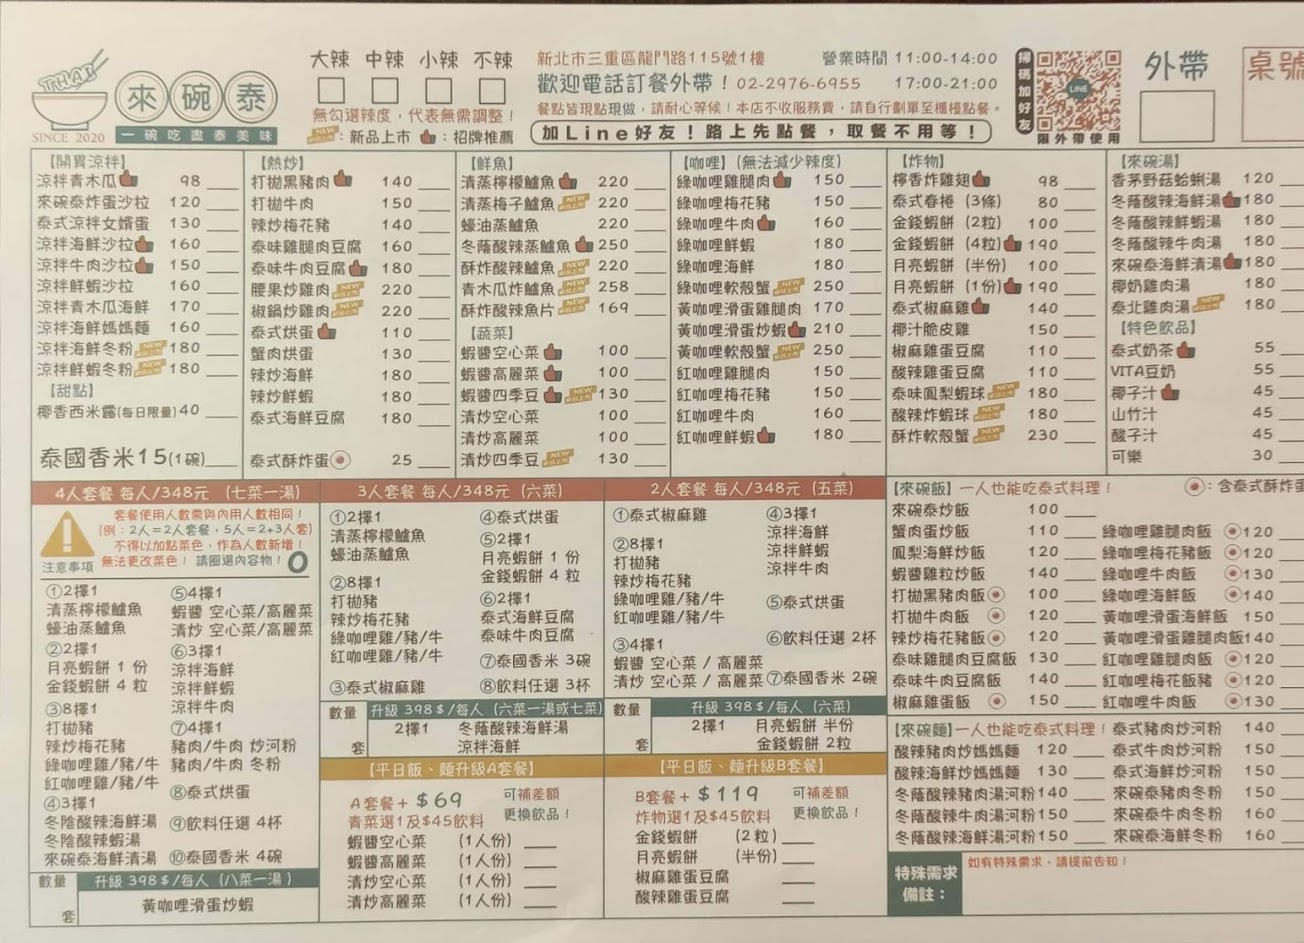 THAI
來碗泰
SINCE 2020
一碗吃盡泰美味
大辣 中辣 小辣 不辣
無勾選辣度，代表無需調整！
NEW：新品上市 ：招牌推薦
新北市三重區龍門路115號1樓 營業時間 11:00-14:00
歡迎電話訂餐外帶！02-2976-6955 17:00-21:00
餐點皆現點現做，請耐心等候！本店不收服務費，請自行劃單至櫃檯點餐。
加Line好友！路上先點餐，取餐不用等！
掃碼加好友
LINE
限外帶使用
外帶
桌號
【開胃涼拌】
涼拌青木瓜 98
來碗泰炸蛋沙拉 120
泰式涼拌女婿蛋 130
涼拌海鮮沙拉 160
涼拌牛肉沙拉 150
涼拌鮮蝦沙拉 160
涼拌青木瓜海鮮 170
涼拌海鮮媽媽麵 160
涼拌海鮮冬粉 NEW 180
涼拌鮮蝦冬粉 NEW 180
【甜點】
椰香西米露(每日限量) 40
泰國香米15(1碗)
【熱炒】
打拋黑豬肉 140
打拋牛肉 150
辣炒梅花豬 140
泰味雞腿肉豆腐 160
泰味牛肉豆腐 180
腰果炒雞肉 NEW 220
椒鍋炒雞肉 NEW 220
泰式烘蛋 110
蟹肉烘蛋 130
辣炒海鮮 180
辣炒鮮蝦 180
泰式海鮮豆腐 180
泰式酥炸蛋 25
【鮮魚】
清蒸檸檬鱸魚 220
清蒸梅子鱸魚 NEW 220
蠔油蒸鱸魚 220
冬蔭酸辣蒸鱸魚 250
酥炸酸辣鱸魚 NEW 220
青木瓜炸鱸魚 NEW 258
酥炸酸辣魚片 NEW 169
【蔬菜】
蝦醬空心菜 100
蝦醬高麗菜 100
蝦醬四季豆 NEW 130
清炒空心菜 100
清炒高麗菜 100
清炒四季豆 NEW 130
【咖哩】(無法減少辣度)
綠咖哩雞腿肉 150
綠咖哩梅花豬 150
綠咖哩牛肉 160
綠咖哩鮮蝦 180
綠咖哩海鮮 180
綠咖哩軟殼蟹 NEW 250
黃咖哩滑蛋雞腿肉 170
黃咖哩滑蛋炒蝦 210
黃咖哩軟殼蟹 NEW 250
紅咖哩雞腿肉 150
紅咖哩梅花豬 150
紅咖哩牛肉 160
紅咖哩鮮蝦 180
【炸物】
檸香炸雞翅 98
泰式春捲 (3條) 80
金錢蝦餅 (2粒) 100
金錢蝦餅 (4粒) 190
月亮蝦餅 (半份) 100
月亮蝦餅 (1份) 190
泰式椒麻雞 140
椰汁脆皮雞 150
椒麻雞蛋豆腐 110
酸辣雞蛋豆腐 110
泰味鳳梨蝦球 NEW 180
酸辣炸蝦球 NEW 180
酥炸軟殼蟹 NEW 230
【來碗湯】
香茅野菇蛤蜊湯 120
冬蔭酸辣海鮮湯 180
冬蔭酸辣鮮蝦湯 180
冬蔭酸辣牛肉湯 180
來碗泰海鮮清湯 180
椰奶雞肉湯 180
泰北雞肉湯 NEW 180
【特色飲品】
泰式奶茶 55
VITA豆奶 55
椰子汁 45
山竹汁 45
酸子汁 45
可樂 30
4人套餐 每人/348元 (七菜一湯)
注意事項
套餐使用人數需與內用人數相同！
(例：2人=2人套餐，5人=2+3人套)
不得以加點菜色，作為人數新增！
無法更改菜色！ 請圈選內容物！
①2擇1
清蒸檸檬鱸魚
蠔油蒸鱸魚
②2擇1
月亮蝦餅 1 份
金錢蝦餅 4 粒
③8擇1
打拋豬
辣炒梅花豬
綠咖哩雞/豬/牛
紅咖哩雞/豬/牛
④3擇1
冬陰酸辣海鮮湯
冬陰酸辣蝦湯
來碗泰海鮮清湯
⑤4擇1
蝦醬 空心菜/高麗菜
清炒 空心菜/高麗菜
⑥3擇1
涼拌海鮮
涼拌鮮蝦
涼拌牛肉
⑦4擇1
豬肉/牛肉 炒河粉
豬肉/牛肉 冬粉
⑧泰式烘蛋
⑨飲料任選 4杯
⑩泰國香米 4碗
數量
套
升級 398$/每人 (八菜一湯)
黃咖哩滑蛋炒蝦
3人套餐 每人/348元 (六菜)
①2擇1
清蒸檸檬鱸魚
蠔油蒸鱸魚
②8擇1
打拋豬
辣炒梅花豬
綠咖哩雞/豬/牛
紅咖哩雞/豬/牛
③泰式椒麻雞
④泰式烘蛋
⑤2擇1
月亮蝦餅 1 份
金錢蝦餅 4 粒
⑥2擇1
泰式海鮮豆腐
泰味牛肉豆腐
⑦泰國香米 3碗
⑧飲料任選 3杯
數量
套
升級 398$/每人 (六菜一湯或七菜)
2擇1 冬蔭酸辣海鮮湯
涼拌海鮮
2人套餐 每人/348元 (五菜)
①泰式椒麻雞
②8擇1
打拋豬
辣炒梅花豬
綠咖哩雞/豬/牛
紅咖哩雞/豬/牛
③4擇1
蝦醬 空心菜 / 高麗菜
清炒 空心菜 / 高麗菜
④3擇1
涼拌海鮮
涼拌鮮蝦
涼拌牛肉
⑤泰式烘蛋
⑥飲料任選 2杯
⑦泰國香米 2碗
數量
套
升級 398$/每人 (六菜)
2擇1 月亮蝦餅 半份
金錢蝦餅 2粒
【平日飯、麵升級A套餐】
A套餐+ $69 可補差額
青菜選1及$45飲料 更換飲品！
蝦醬空心菜 (1人份)
蝦醬高麗菜 (1人份)
清炒空心菜 (1人份)
清炒高麗菜 (1人份)
【平日飯、麵升級B套餐】
B套餐+ $119 可補差額
炸物選1及$45飲料 更換飲品！
金錢蝦餅 (2粒)
月亮蝦餅 (半份)
椒麻雞蛋豆腐
酸辣雞蛋豆腐
【來碗飯】一人也能吃泰式料理！ ：含泰式酥炸蛋
來碗泰炒飯 100
蟹肉蛋炒飯 110
鳳梨海鮮炒飯 120
蝦醬雞粒炒飯 140
打拋黑豬肉飯 120
打拋牛肉飯 120
辣炒梅花豬飯 120
泰味雞腿肉豆腐飯 130
泰味牛肉豆腐飯 140
椒麻雞蛋飯 150
綠咖哩雞腿肉飯 120
綠咖哩梅花豬飯 120
綠咖哩牛肉飯 130
綠咖哩海鮮飯 140
黃咖哩滑蛋海鮮飯 150
黃咖哩滑蛋雞腿肉飯 140
紅咖哩雞腿肉飯 120
紅咖哩梅花飯豬 120
紅咖哩牛肉飯 130
【來碗麵】一人也能吃泰式料理！
酸辣豬肉炒媽媽麵 120
酸辣海鮮炒媽媽麵 130
冬蔭酸辣豬肉湯河粉 140
冬蔭酸辣牛肉湯河粉 150
冬蔭酸辣海鮮湯河粉 150
泰式豬肉炒河粉 140
泰式牛肉炒河粉 150
泰式海鮮炒河粉 150
來碗泰豬肉冬粉 150
來碗泰牛肉冬粉 160
來碗泰海鮮冬粉 160
特殊需求備註：
如有特殊需求，請提前告知！